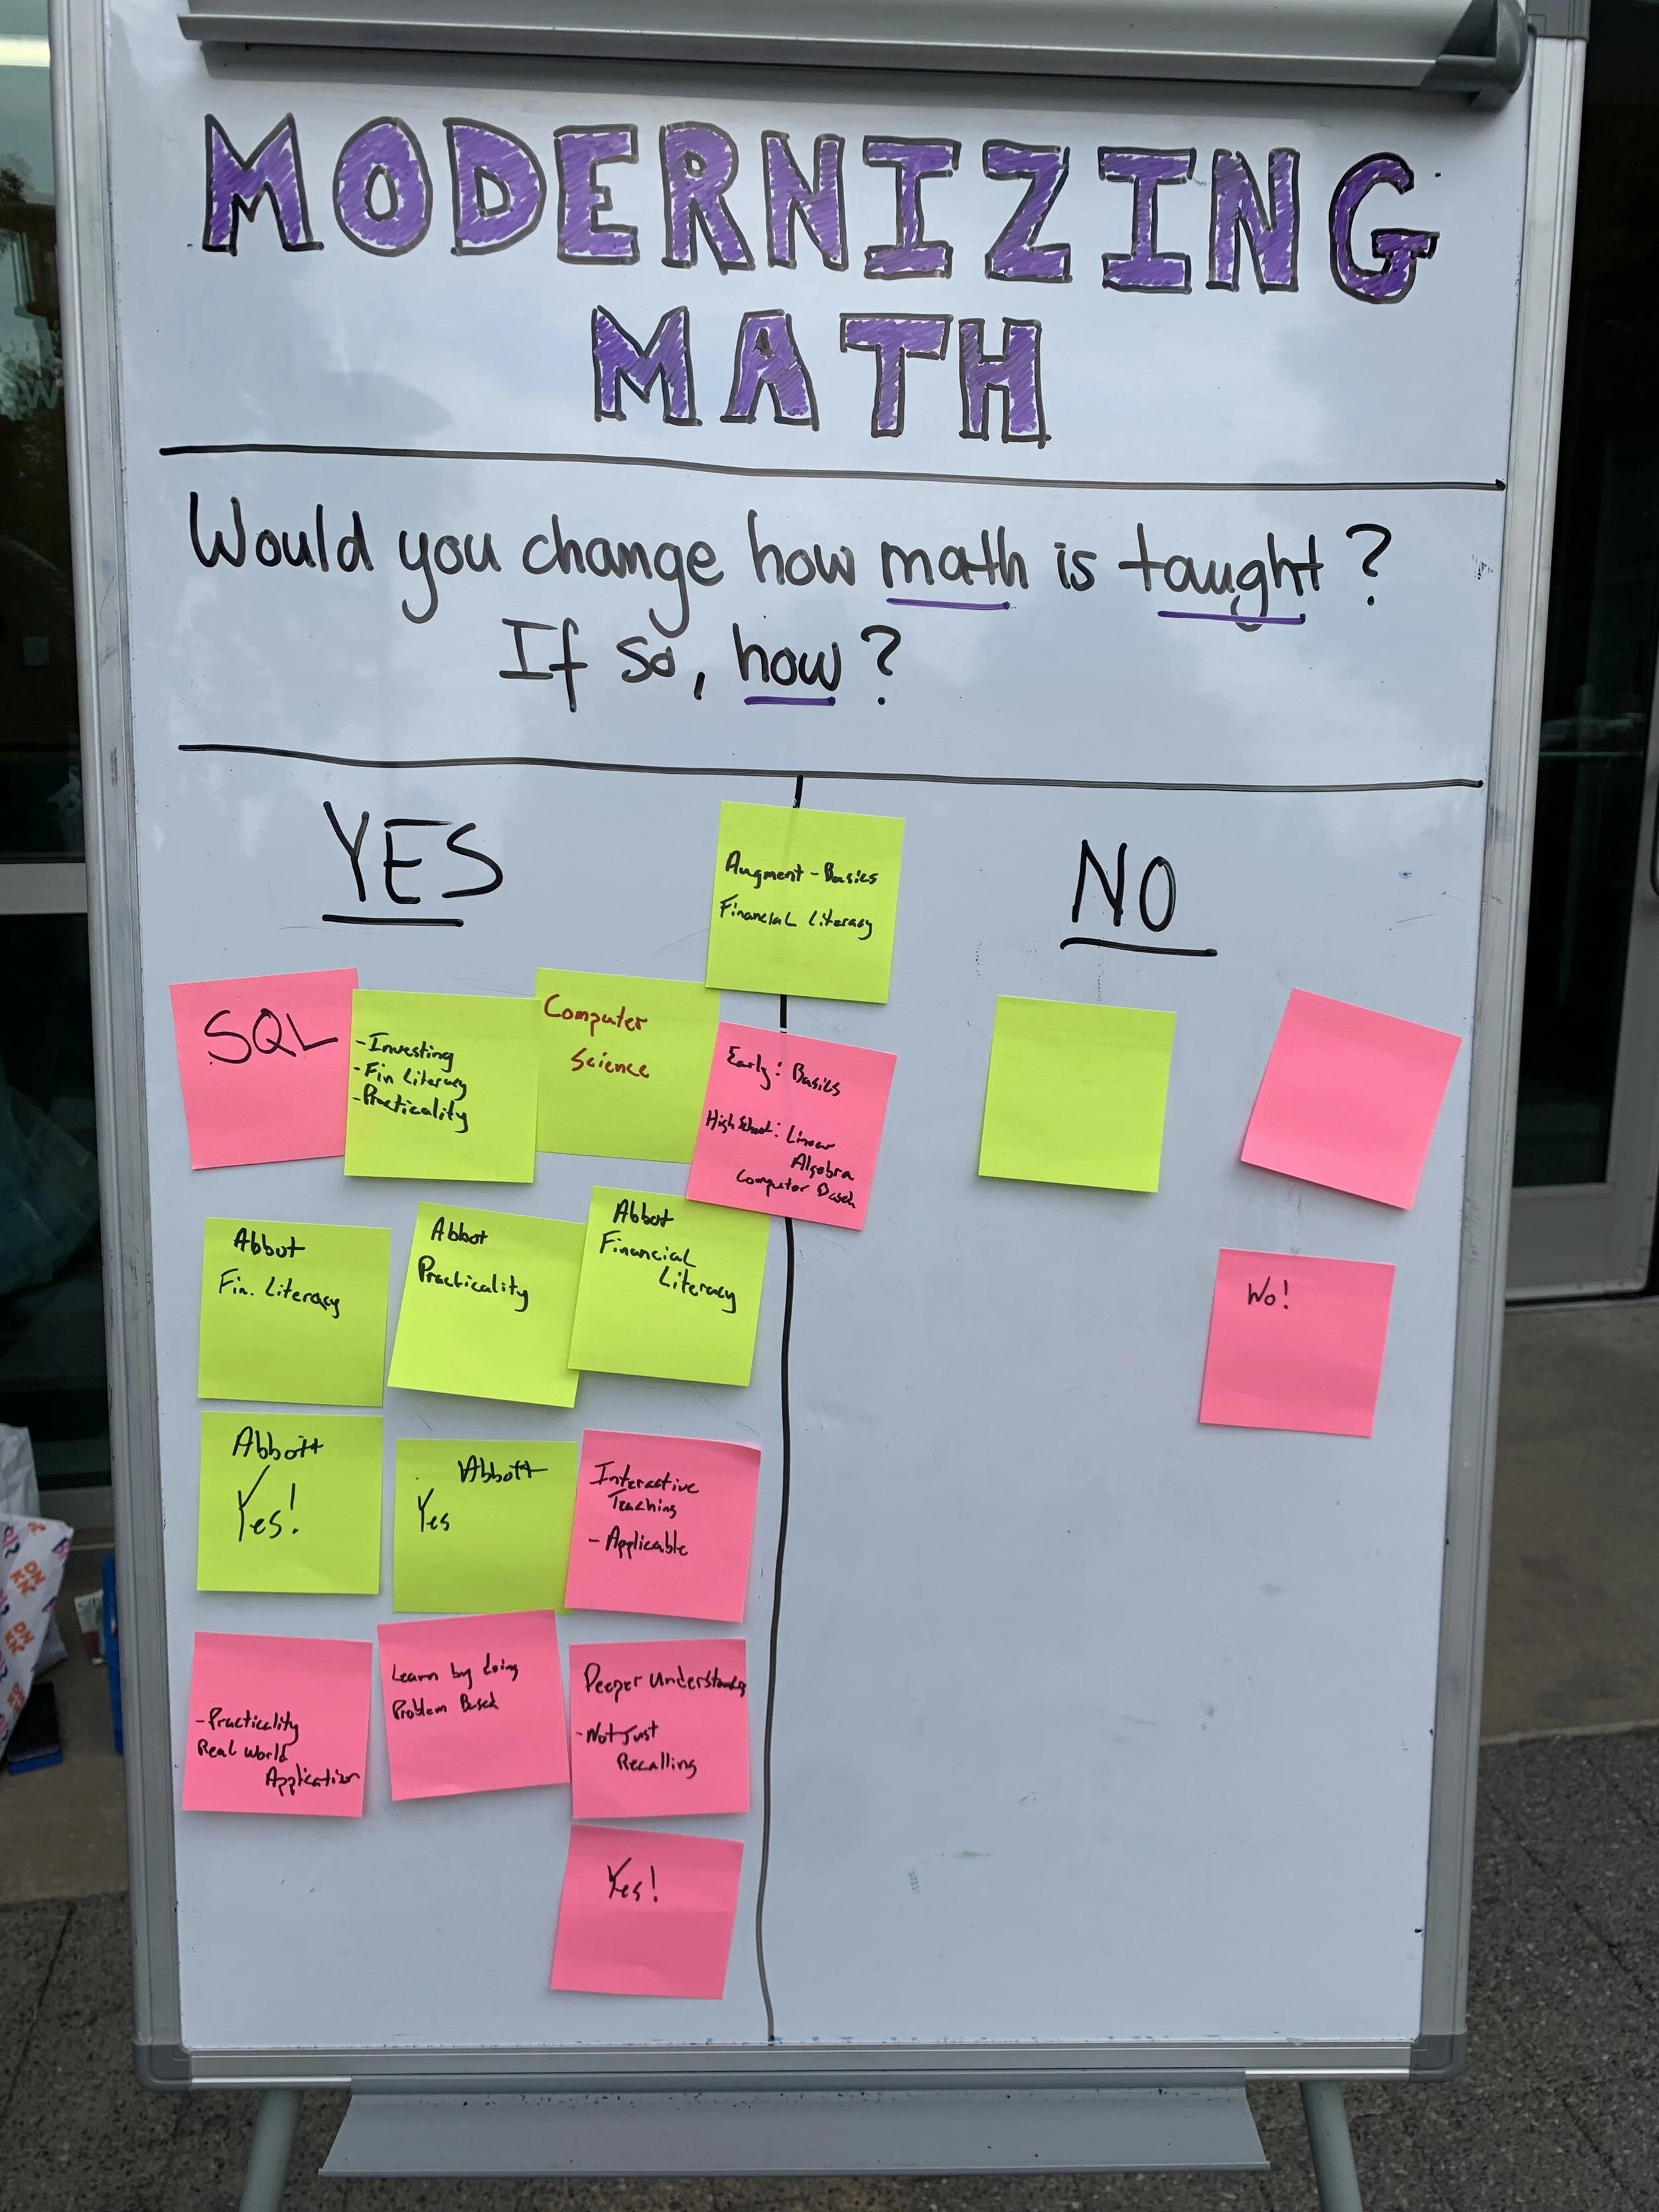 MODERNIZING
MATH
Would you change how math is taught?
If so, how?
YES
NO
Augment - Basics
Financial Literacy
SQL
- Investing
- Fin Literacy
- Practicality
Computer
Science
Early: Basics
High School: Linear
Algebra
Computer Based
Abbot
Fin. Literacy
Abbot
Practicality
Abbot
Financial
Literacy
Wo!
Abbott
Yes!
Abbott
Yes
Interactive
Teaching
- Applicable
- Practicality
Real World
Application
Learn by doing
Problem Based
Deeper Understanding
- Not Just
Recalling
Yes!